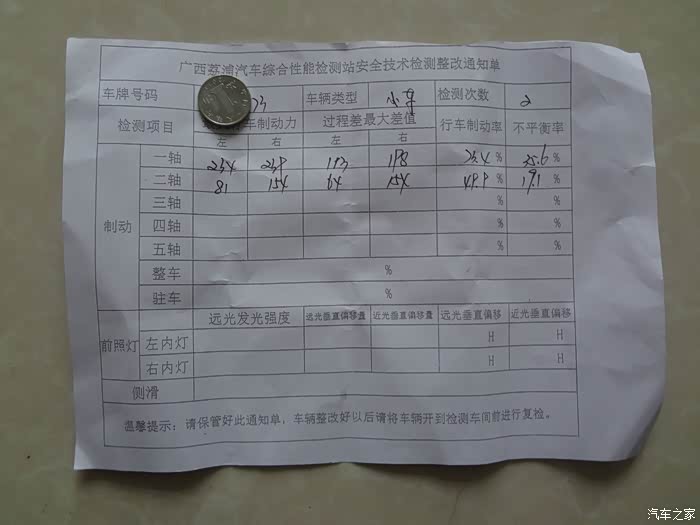 广西荔浦汽车综合性能检测站安全技术检测整改通知单
车牌号码 23 车辆类型 小车 检测次数 2
检测项目 车制动力 过程差最大差值 行车制动率 不平衡率
左 右 左 右
制动
一轴 234 238 % %
二轴 81 154 64 154 49.9 % 19.1 %
三轴 % %
四轴 % %
五轴 % %
整车 %
驻车 %
前照灯 远光发光强度 远光垂直偏移量 近光垂直偏移量 远光垂直偏移 近光垂直偏移
左内灯 H H
右内灯 H H
侧滑
温馨提示：请保管好此通知单，车辆整改好以后请将车辆开到检测车间前进行复检。
汽车之家